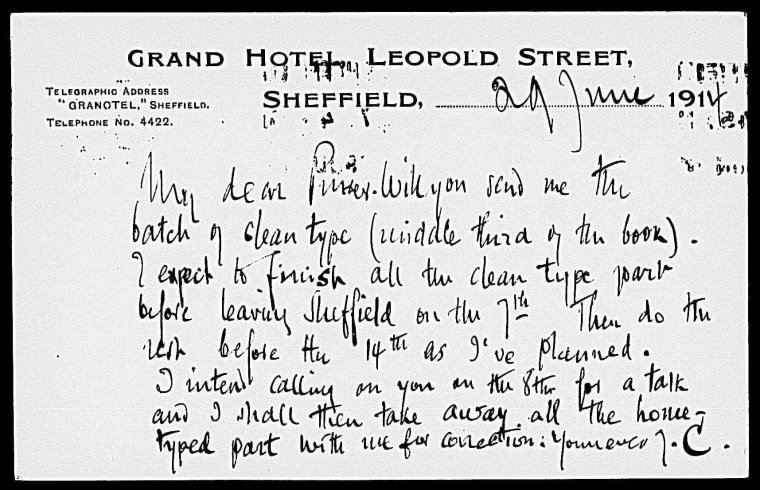 GRAND HOTEL, LEOPOLD STREET,
TELEGRAPHIC ADDRESS
"GRANOTEL," SHEFFIELD.
TELEPHONE NO. 4422.
SHEFFIELD, 29 June 1914
My dear Pinker. Will you send me the
batch of clean type (middle third of the book).
I expect to finish all the clean type part
before leaving Sheffield on the 7th. Then do the
rest before the 14th as I've planned.
I intend calling on you on the 8th for a talk
and I shall then take away all the home-
typed part with me for correction: Yours ever J.C.